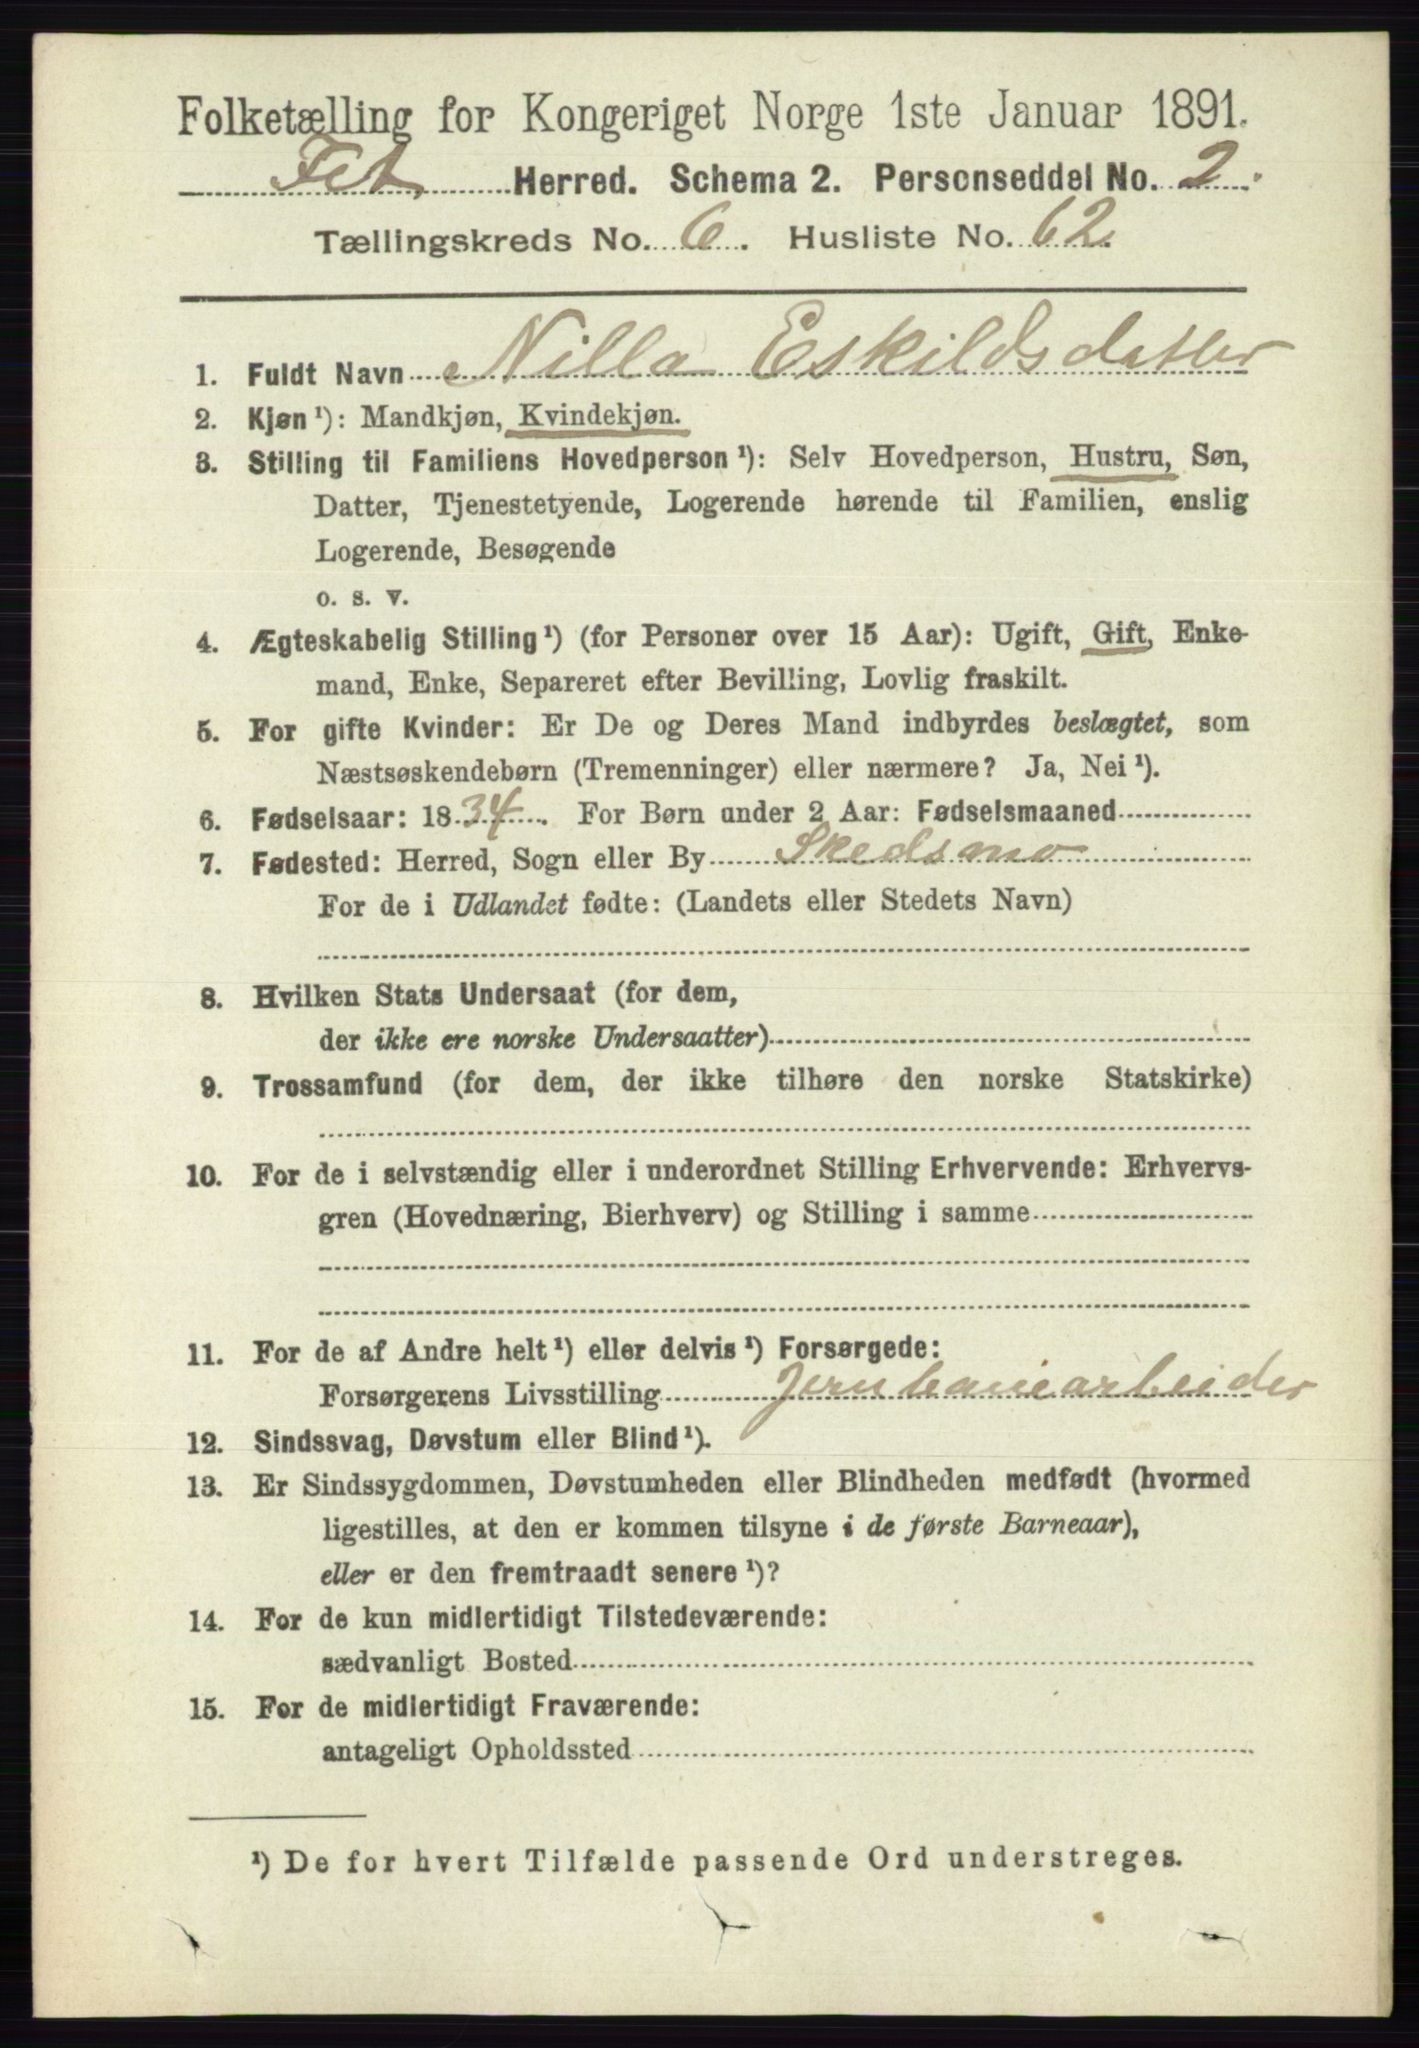 Folketælling for Kongeriget Norge 1ste Januar 1891.
Fet, Herred. Schema 2. Personseddel No. 2.
Tællingskreds No. 6. Husliste No. 62.
1. Fuldt Navn Nilla Eskildsdatter
2. Kjøn ¹): Mandkjøn, Kvindekjøn.
3. Stilling til Familiens Hovedperson ¹): Selv Hovedperson, Hustru, Søn,
Datter, Tjenestetyende, Logerende hørende til Familien, enslig
Logerende, Besøgende
o. s. v.
4. Ægteskabelig Stilling ¹) (for Personer over 15 Aar): Ugift, Gift, Enke-
mand, Enke, Separeret efter Bevilling, Lovlig fraskilt.
5. For gifte Kvinder: Er De og Deres Mand indbyrdes beslægtet, som
Næstsøskendebørn (Tremenninger) eller nærmere? Ja, Nei ¹).
6. Fødselsaar: 1834. For Børn under 2 Aar: Fødselsmaaned
7. Fødested: Herred, Sogn eller By Skedsmo
For de i Udlandet fødte: (Landets eller Stedets Navn)
8. Hvilken Stats Undersaat (for dem,
der ikke ere norske Undersaatter)
9. Trossamfund (for dem, der ikke tilhøre den norske Statskirke)
10. For de i selvstændig eller i underordnet Stilling Erhvervende: Erhvervs-
gren (Hovednæring, Bierhverv) og Stilling i samme
11. For de af Andre helt ¹) eller delvis ¹) Forsørgede:
Forsørgerens Livsstilling Jernbanearbeider
12. Sindssvag, Døvstum eller Blind ¹).
13. Er Sindssygdommen, Døvstumheden eller Blindheden medfødt (hvormed
ligestilles, at den er kommen tilsyne i de første Barneaar),
eller er den fremtraadt senere ¹)?
14. For de kun midlertidigt Tilstedeværende:
sædvanligt Bosted
15. For de midlertidigt Fraværende:
antageligt Opholdssted
¹) De for hvert Tilfælde passende Ord understreges.